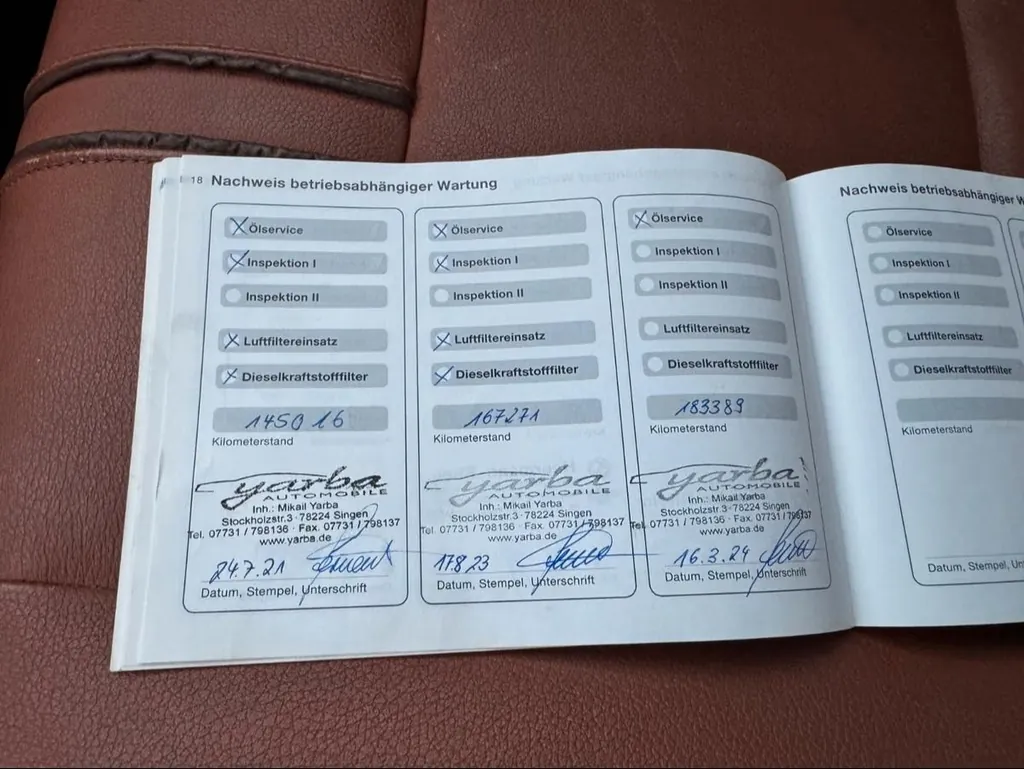 18 Nachweis betriebsabhängiger Wartung
Ölservice
Inspektion I
Inspektion II
Luftfiltereinsatz
Dieselkraftstofffilter
145016
Kilometerstand
yarba
AUTOMOBILE
Inh.: Mikail Yarba
Stockholzstr.3 · 78224 Singen
Tel. 07731 / 798136 · Fax. 07731 / 798137
www.yarba.de
24.7.21
Datum, Stempel, Unterschrift
Ölservice
Inspektion I
Inspektion II
Luftfiltereinsatz
Dieselkraftstofffilter
167271
Kilometerstand
yarba
AUTOMOBILE
Inh.: Mikail Yarba
Stockholzstr.3 · 78224 Singen
Tel. 07731 / 798136 · Fax. 07731 / 798137
www.yarba.de
17.8.23
Datum, Stempel, Unterschrift
Ölservice
Inspektion I
Inspektion II
Luftfiltereinsatz
Dieselkraftstofffilter
183389
Kilometerstand
yarba
AUTOMOBILE
Inh.: Mikail Yarba
Stockholzstr.3 · 78224 Singen
Tel. 07731 / 798136 · Fax. 07731 / 798137
www.yarba.de
16.3.24
Datum, Stempel, Unterschrift
Nachweis betriebsabhängiger
Ölservice
Inspektion I
Inspektion II
Luftfiltereinsatz
Dieselkraftstofffilter
Kilometerstand
Datum, Stempel,